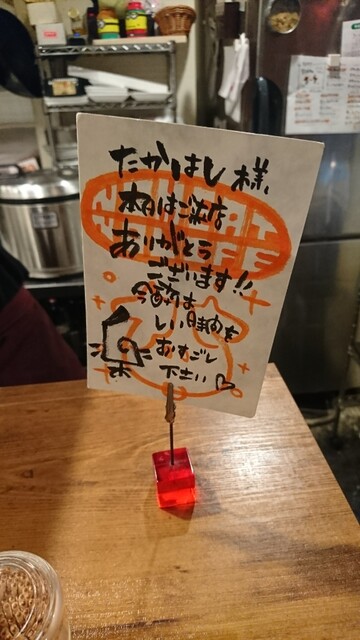 たかはし 様
本日はご来店
ありがとう
ございます!!
しい時間を
おすごし
下さい♡